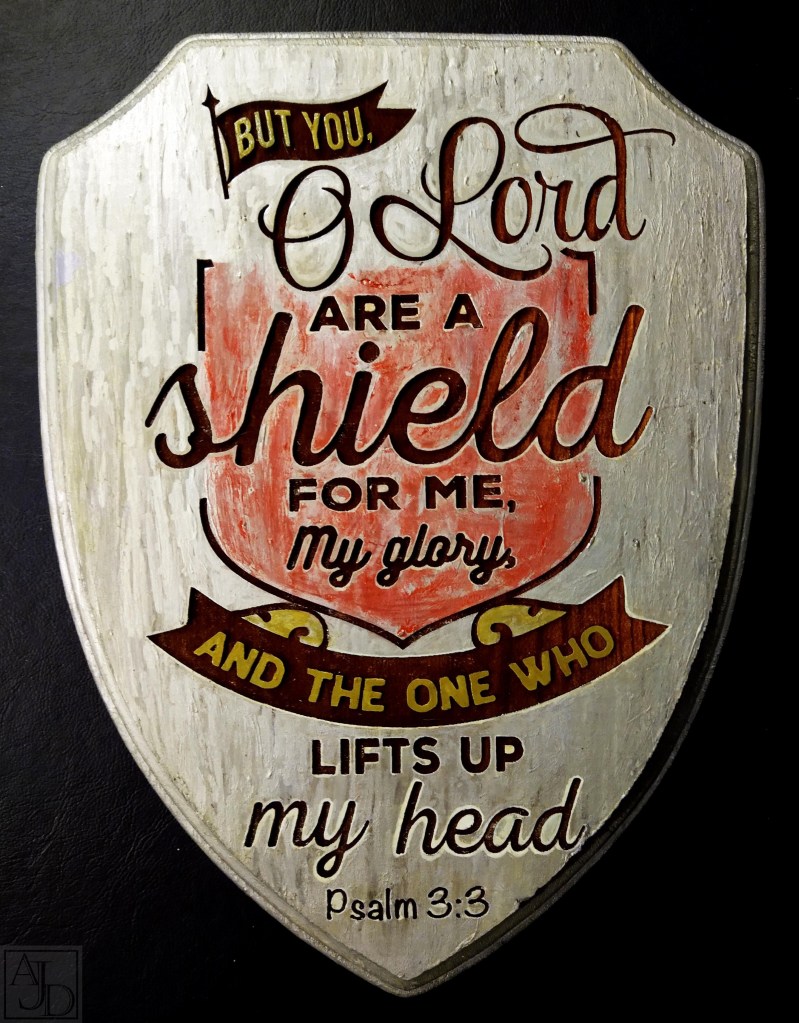 BUT YOU,
O Lord
ARE A
shield
FOR ME,
My glory,
AND THE ONE WHO
LIFTS UP
my head
Psalm 3:3
AJD